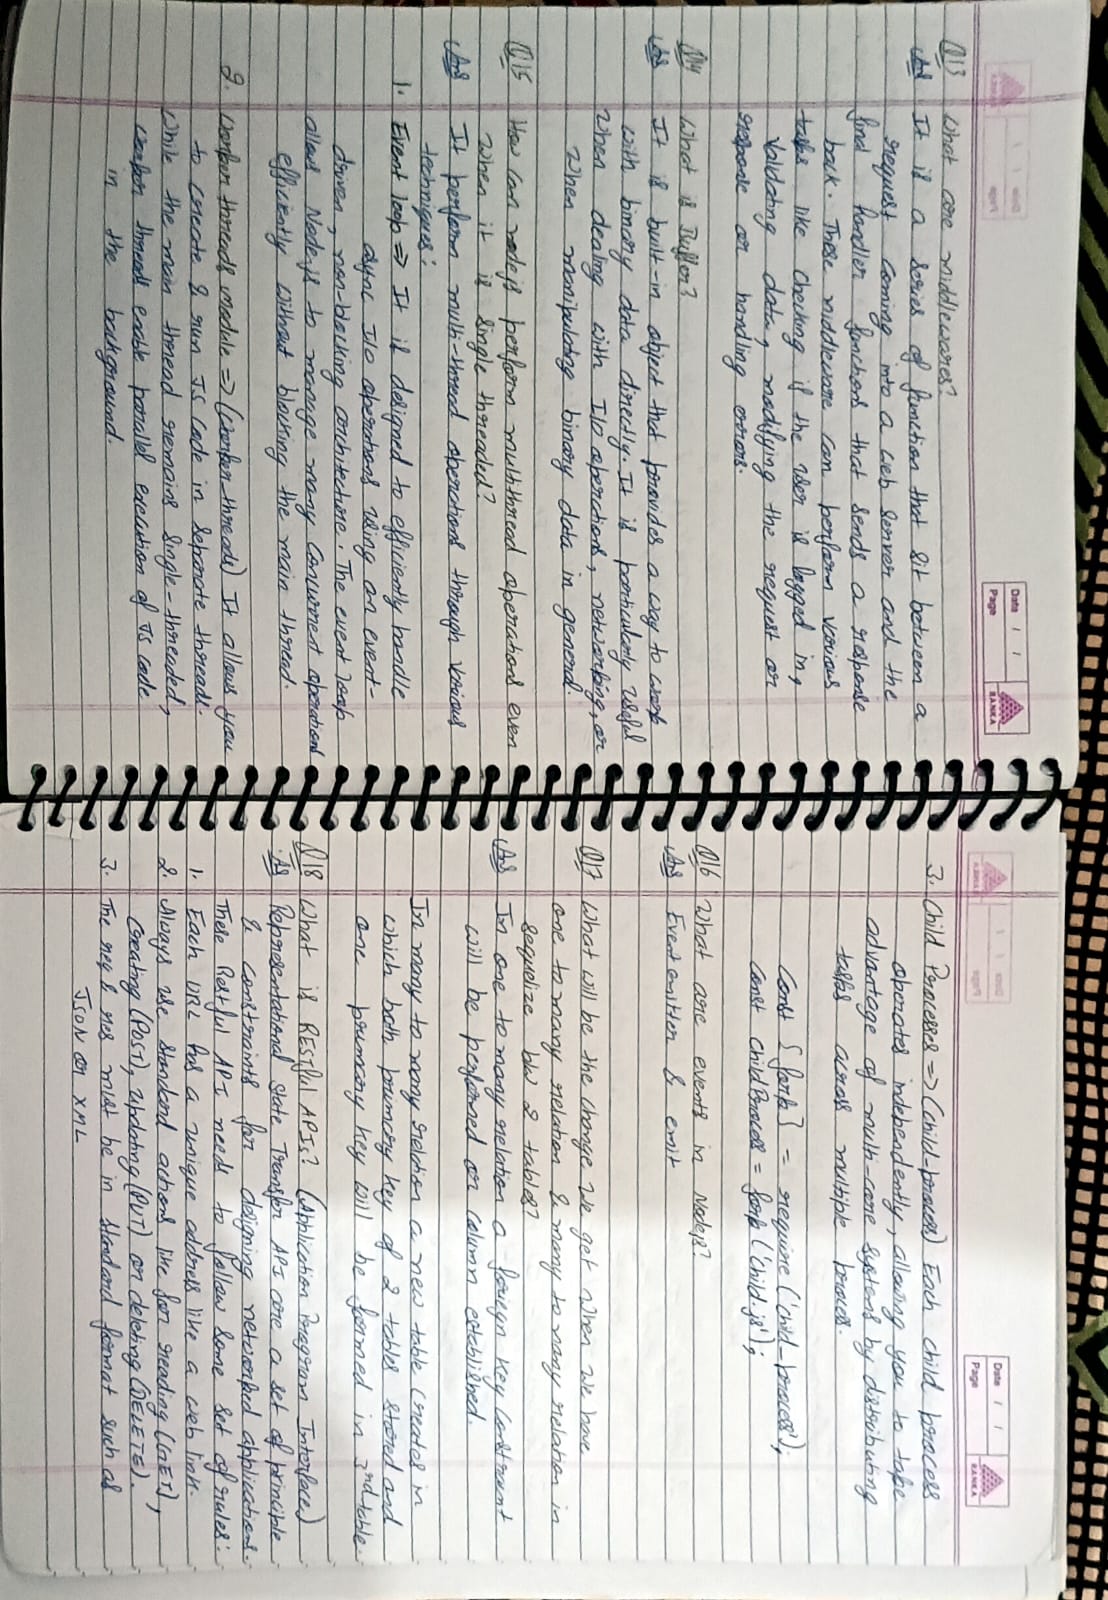 Date / /
Page
RANKA
Q13 What are middlewares?
Ans It is a series of function that sit between a
request coming into a web server and the
find handler functions that sends a response
back. These middleware can perform various
tasks like checking if the user is logged in,
validating data, modifying the request or
response or handling errors.
Q14 What is Buffer?
Ans It is built-in object that provides a way to work
with binary data directly. It is particularly useful
when dealing with I/O operations, networking, or
when manipulating binary data in general.
Q15 How can nodejs perform multithread operations even
when it is single threaded?
Ans It perform multi-thread operations through various
techniques:
1. Event loop => It is designed to efficiently handle
async I/O operations using an event-
driven, non-blocking architecture. The event loop
allows Nodejs to manage many concurrent operations
efficiently without blocking the main thread.
2. Worker threads module => (worker-threads) It allows you
to create & run JS code in separate threads.
While the main thread remains single-threaded,
worker threads enable parallel execution of JS code
in the background.
Date / /
Page
RANKA
3. Child Processes => (child-process) Each child process
operates independently, allowing you to take
advantage of multi-core systems by distributing
tasks across multiple process.
const { fork } = require ('child-process');
const childProcess = fork ('child.js');
Q16 What are events in Nodejs?
Ans Event emitter & emit
Q17 What will be the change we get when we have
one to many relation & many to many relation in
sequelize b/w 2 tables?
Ans In one to many relation a foreign key constraint
will be performed or column established.
In many to many relation a new table creates in
which both primary key of 2 tables stored and
one primary key will be formed in 3rd table.
Q18 What is RESTful APIs? (Application Program Interface)
Ans Representational State Transfer API are a set of principle
& constraints for designing networked applications.
These Restful API needs to follow some set of rules:
1. Each URL has a unique address like a web link.
2. Always use standard actions like for reading (GET),
Creating (POST), updating (PUT) or deleting (DELETE).
3. The req & res must be in standard format such as
JSON or XML